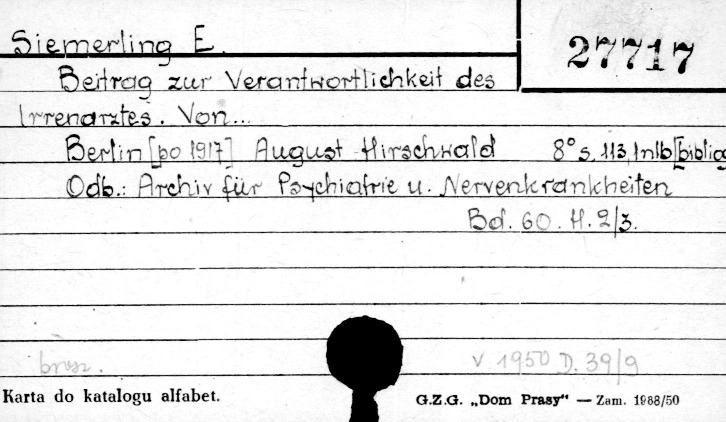 Siemerling E.
27717
Beitrag zur Verantwortlichkeit des
Irrenarztes. Von...
Berlin [po 1917] August Hirschwald 8° s. 113, 1nlb [bibliog
Odb.: Archiv für Psychiatrie u. Nervenkrankheiten
Bd. 60. H. 2/3.
brosz.
V. 1950 D. 39/9
Karta do katalogu alfabet.
G.Z.G. „Dom Prasy” — Zam. 1988/50